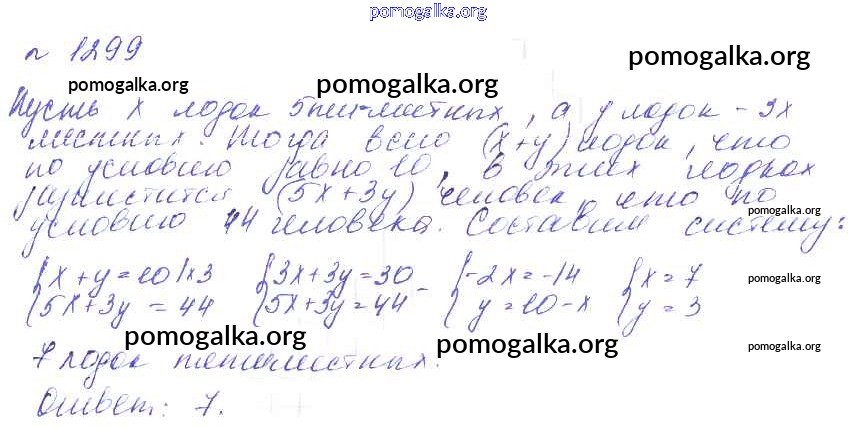 pomogalka.org
№ 1299
pomogalka.org
pomogalka.org
pomogalka.org
Пусть x лодок 5ти-местных, а y лодок - 3х
местных. Тогда всего (x+y) лодок, что
по условию равно 10, в этих лодках
разместится (5x+3y) человек, что по
pomogalka.org
условию 44 человека. Составим систему:
{x+y=10 |x3 {3x+3y=30 - {-2x=-14 {x=7
{5x+3y=44 {5x+3y=44 {y=10-x {y=3
pomogalka.org
pomogalka.org
pomogalka.org
pomogalka.org
7 лодок пятиместных.
Ответ: 7.